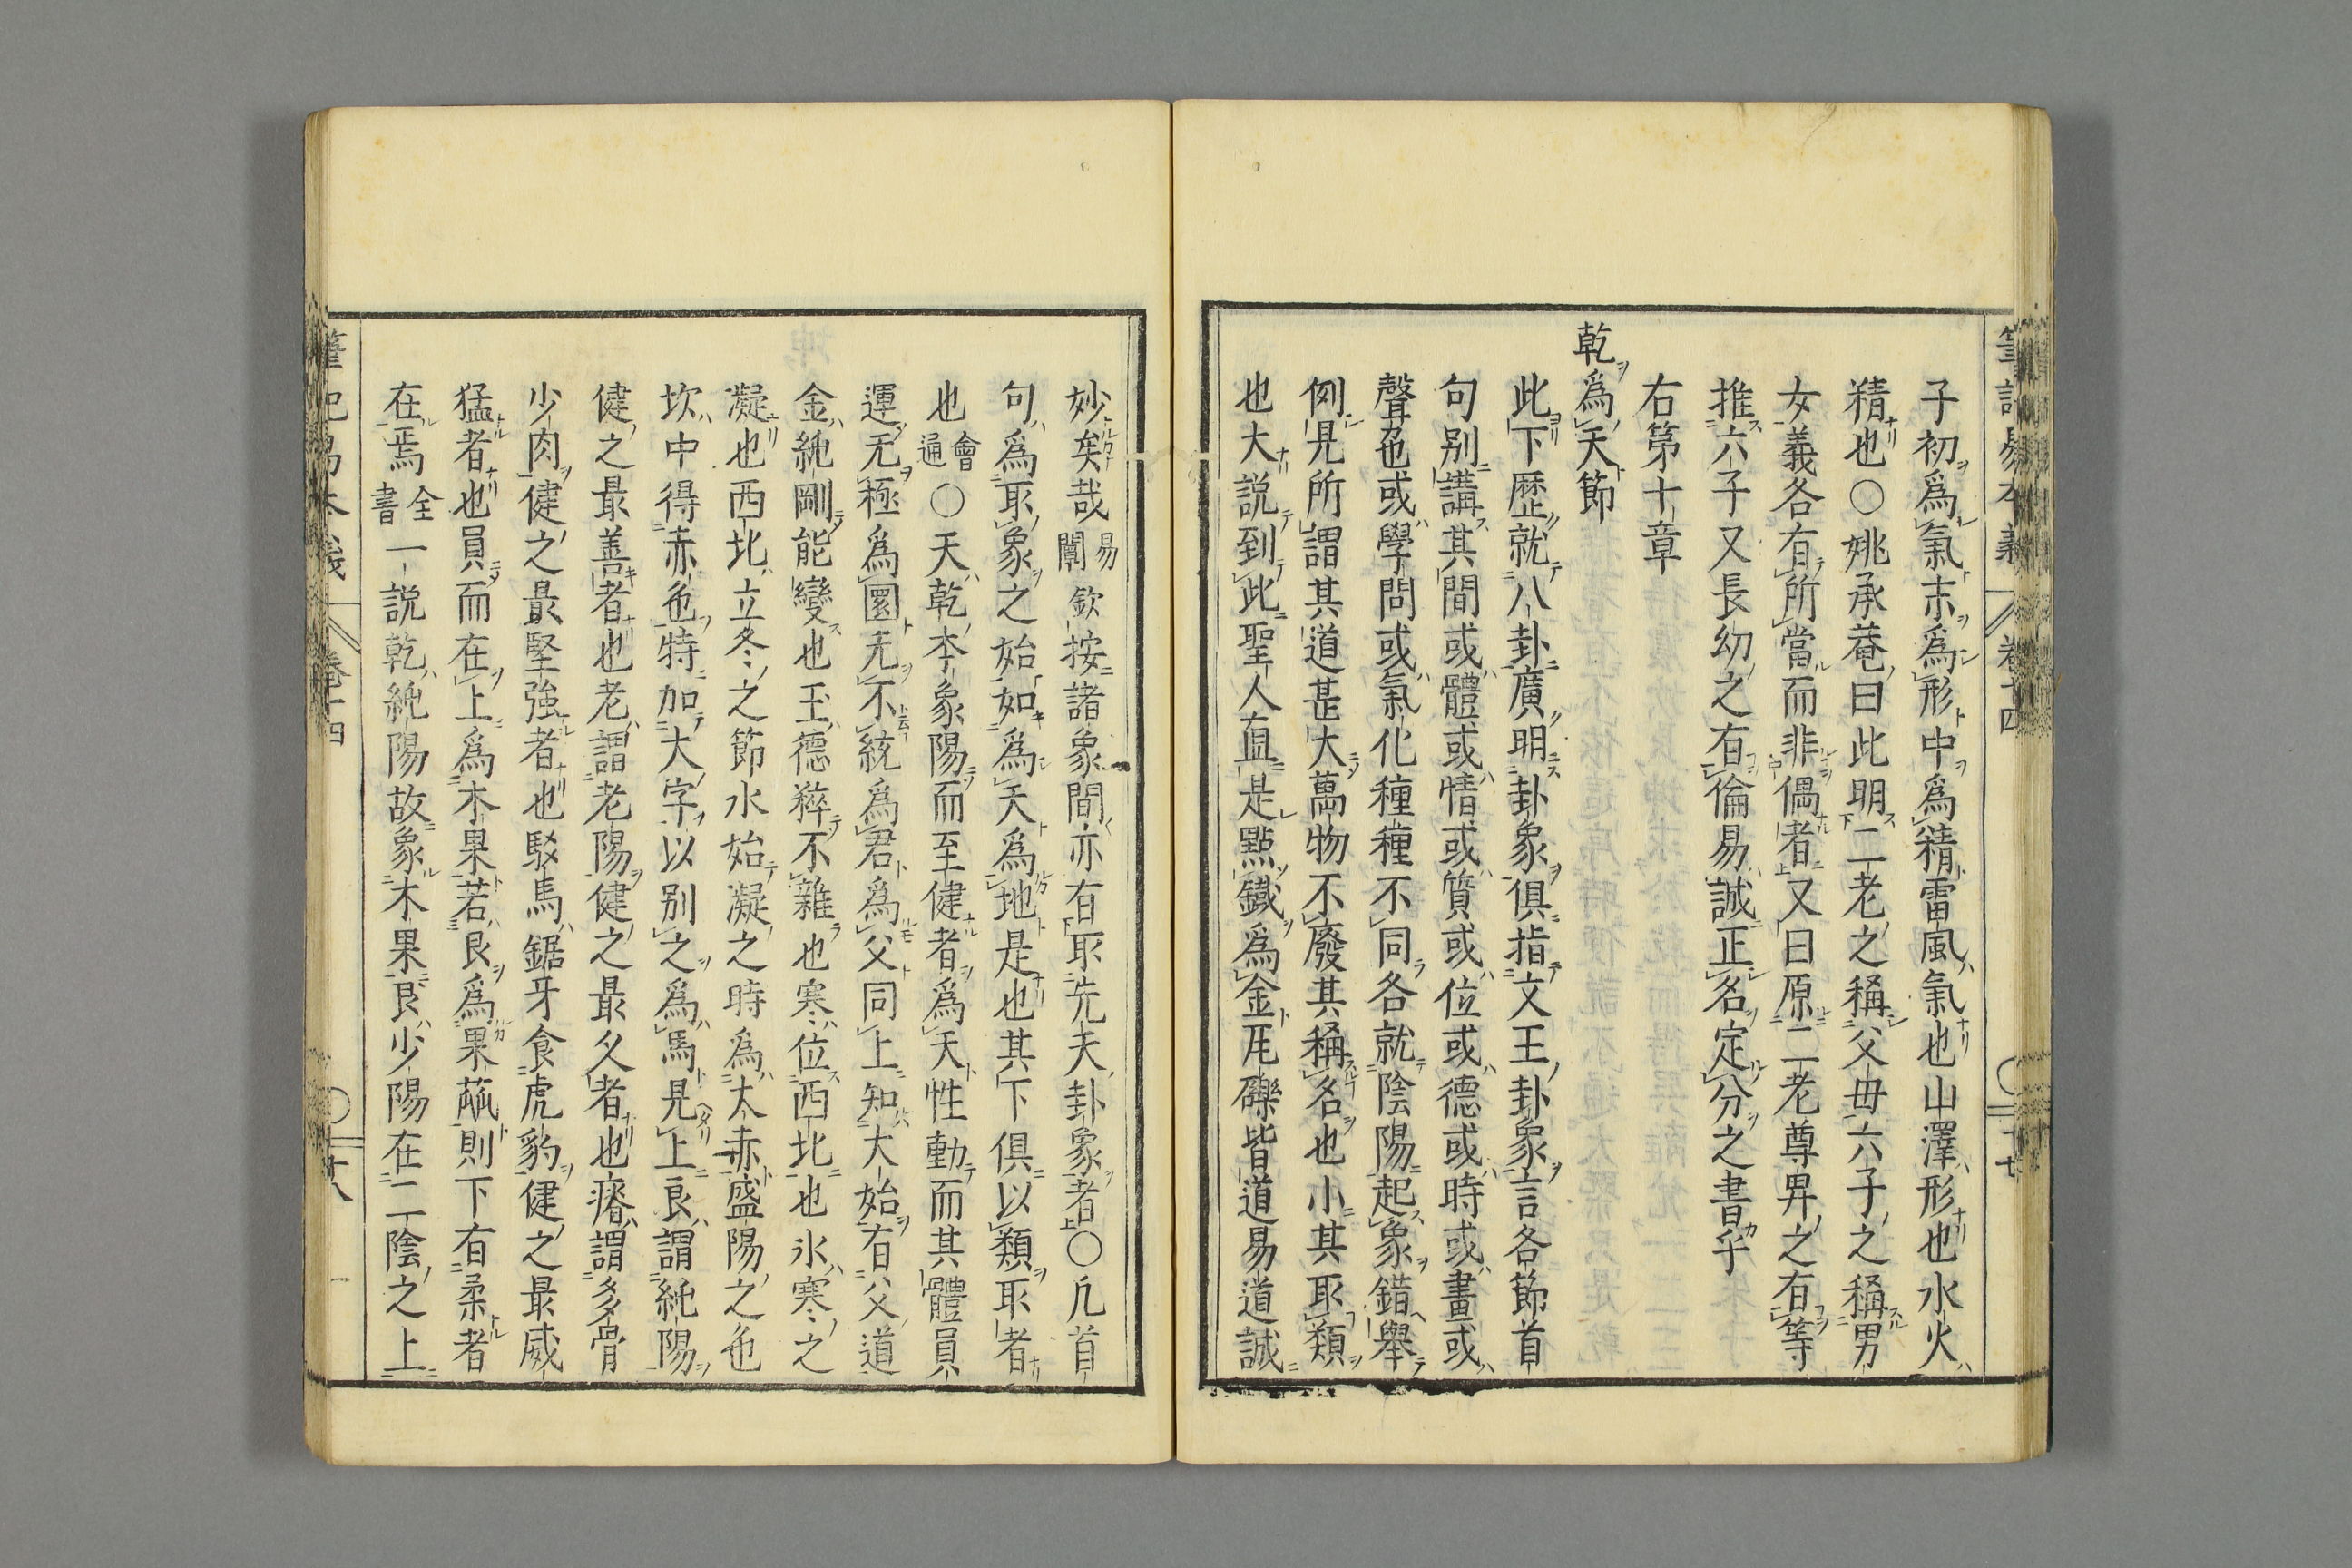 筆記易本義 卷十四 十七
子初爲氣末爲形中爲精雷風氣也山澤形也水火
精也○姚承菴曰此明二老之稱父母六子之稱男
女義各有所當而非偶者又曰原二老尊昇之有等
推六子又長幼之有倫易誠正名定分之書乎
右第十章
乾爲天節
此下歷就八卦廣明卦象俱指文王卦象言各節首
句别講其間或體或情或質或位或德或時或畫或
聲色或學問或氣化種種不同各就陰陽起象錯舉
例見所謂其道甚大萬物不廢其稱名也小其取類
也大説到此聖人直是點鐵爲金瓦礫皆道易道誠
妙矣哉易闡欽按諸象間亦有取先天卦象者○凡首
句爲取象之始如爲天爲地是也其下俱以類取者
也會通○天乾本象陽而至健者爲天性動而其體員
運无極爲圜无不統爲君爲父同上知大始有父道
金純剛能變也玉德粹不雜也寒位西北也氷寒之
凝也西北立冬之節水始凝之時爲大赤盛陽之色
坎中得赤色特加大字以别之爲馬見上良謂純陽
健之最善者也老謂老陽健之最久者也瘠謂多骨
少肉健之最堅強者也駁馬鋸牙食虎豹健之最威
猛者也員而在上爲木果若艮爲果蓏則下有柔者
在焉全書一説乾純陽故象木果艮少陽在二陰之上
筆記易本義 卷十四 十八